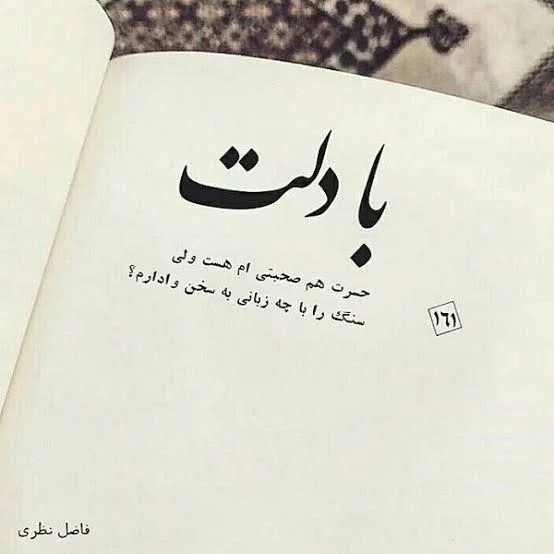 با دلت
حسرت هم صحبتی ام هست ولی
سنگ را با چه زبانی به سخن وادارم؟
۱۶۱
فاضل نظری